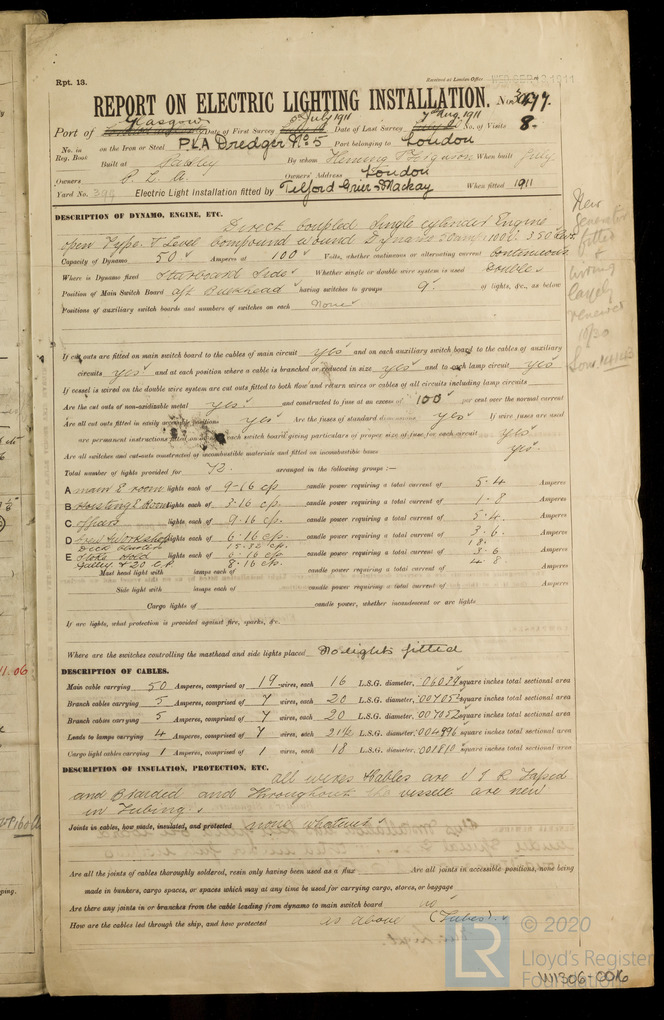 Rpt. 13.
Received at London Office WED. SEP. 13 1911
REPORT ON ELECTRIC LIGHTING INSTALLATION. No. 30477.
Port of Glasgow Date of First Survey 5 July 1911 Date of Last Survey 7th Aug. 1911 No. of Visits 8.
No. in Reg. Book on the Iron or Steel PLA Dredger No. 5 Port belonging to London
Built at Paisley By whom Fleming & Ferguson When built July
Owners P. L. A. Owners' Address London
Yard No. 399 Electric Light installation fitted by Telford Grier & Mackay When fitted 1911
DESCRIPTION OF DYNAMO, ENGINE, ETC.
Direct coupled Single cylinder Engine
open Type. & Level compound wound Dynamo 50 amp. 100 V. 350 Rev.
Capacity of Dynamo 50 Amperes at 100 Volts, whether continuous or alternating current continuous
Where is Dynamo fixed Starboard Side Whether single or double wire system is used Double
Position of Main Switch Board aft Bulkhead having switches to groups 9 of lights, &c., as below
Positions of auxiliary switch boards and numbers of switches on each None
If cut outs are fitted on main switch board to the cables of main circuit yes and on each auxiliary switch board to the cables of auxiliary
circuits yes and at each position where a cable is branched or reduced in size yes and to each lamp circuit yes
If vessel is wired on the double wire system are cut outs fitted to both flow and return wires or cables of all circuits including lamp circuits
Are the cut outs of non-oxidizable metal yes and constructed to fuse at an excess of 100 per cent over the normal current
Are all cut outs fitted in easily accessible positions yes Are the fuses of standard dimensions yes If wire fuses are used
are permanent instructions fitted on each switch board giving particulars of proper size of fuse for each circuit yes
Are all switches and cut-outs constructed of incombustible materials and fitted on incombustible bases yes
Total number of lights provided for 72. arranged in the following groups :—
A main E room lights each of 9-16 c/p. candle power requiring a total current of 5.4 Amperes
B Hoisting E Room lights each of 3-16 c/p. candle power requiring a total current of 1.8 Amperes
C officers lights each of 9-16 c/p. candle power requiring a total current of 5.4 Amperes
D Crew & Workshop lights each of 6-16 c/p. candle power requiring a total current of 3.6 Amperes
Deck 15-32 c/p. 18.
E Stoke Hold lights each of 6-16 c/p. candle power requiring a total current of 3.6 Amperes
Galley & 20 C.P. 8-16 c/p. 4.8
Mast head light with lamps each of candle power requiring a total current of Amperes
Side light with lamps each of candle power requiring a total current of Amperes
Cargo lights of candle power, whether incandescent or arc lights
If arc lights, what protection is provided against fire, sparks, &c.
Where are the switches controlling the masthead and side lights placed No lights fitted
DESCRIPTION OF CABLES.
Main cable carrying 50 Amperes, comprised of 19 wires, each 16 L.S.G. diameter, .06039 square inches total sectional area
Branch cables carrying 5 Amperes, comprised of 7 wires, each 20 L.S.G. diameter, .007052 square inches total sectional area
Branch cables carrying 5 Amperes, comprised of 7 wires, each 20 L.S.G. diameter, .007052 square inches total sectional area
Leads to lamps carrying 4 Amperes, comprised of 7 wires, each 21½ L.S.G. diameter, .004996 square inches total sectional area
Cargo light cables carrying 1 Amperes, comprised of 1 wires, each 18 L.S.G. diameter, .001810 square inches total sectional area
DESCRIPTION OF INSULATION, PROTECTION, ETC.
all wires & cables are V I R Taped
and Braided and throughout the vessell are run
in Tubing.
Joints in cables, how made, insulated, and protected none whatever
Are all the joints of cables thoroughly soldered, resin only having been used as a flux Are all joints in accessible positions, none being
made in bunkers, cargo spaces, or spaces which may at any time be used for carrying cargo, stores, or baggage
Are there any joints in or branches from the cable leading from dynamo to main switch board no
How are the cables led through the ship, and how protected as above (Tubes).
New
Generator
fitted
&
wiring
largely
renewed
10/30
Lon.
© 2020
Lloyd's Register
Foundation
LR
W1306-0016